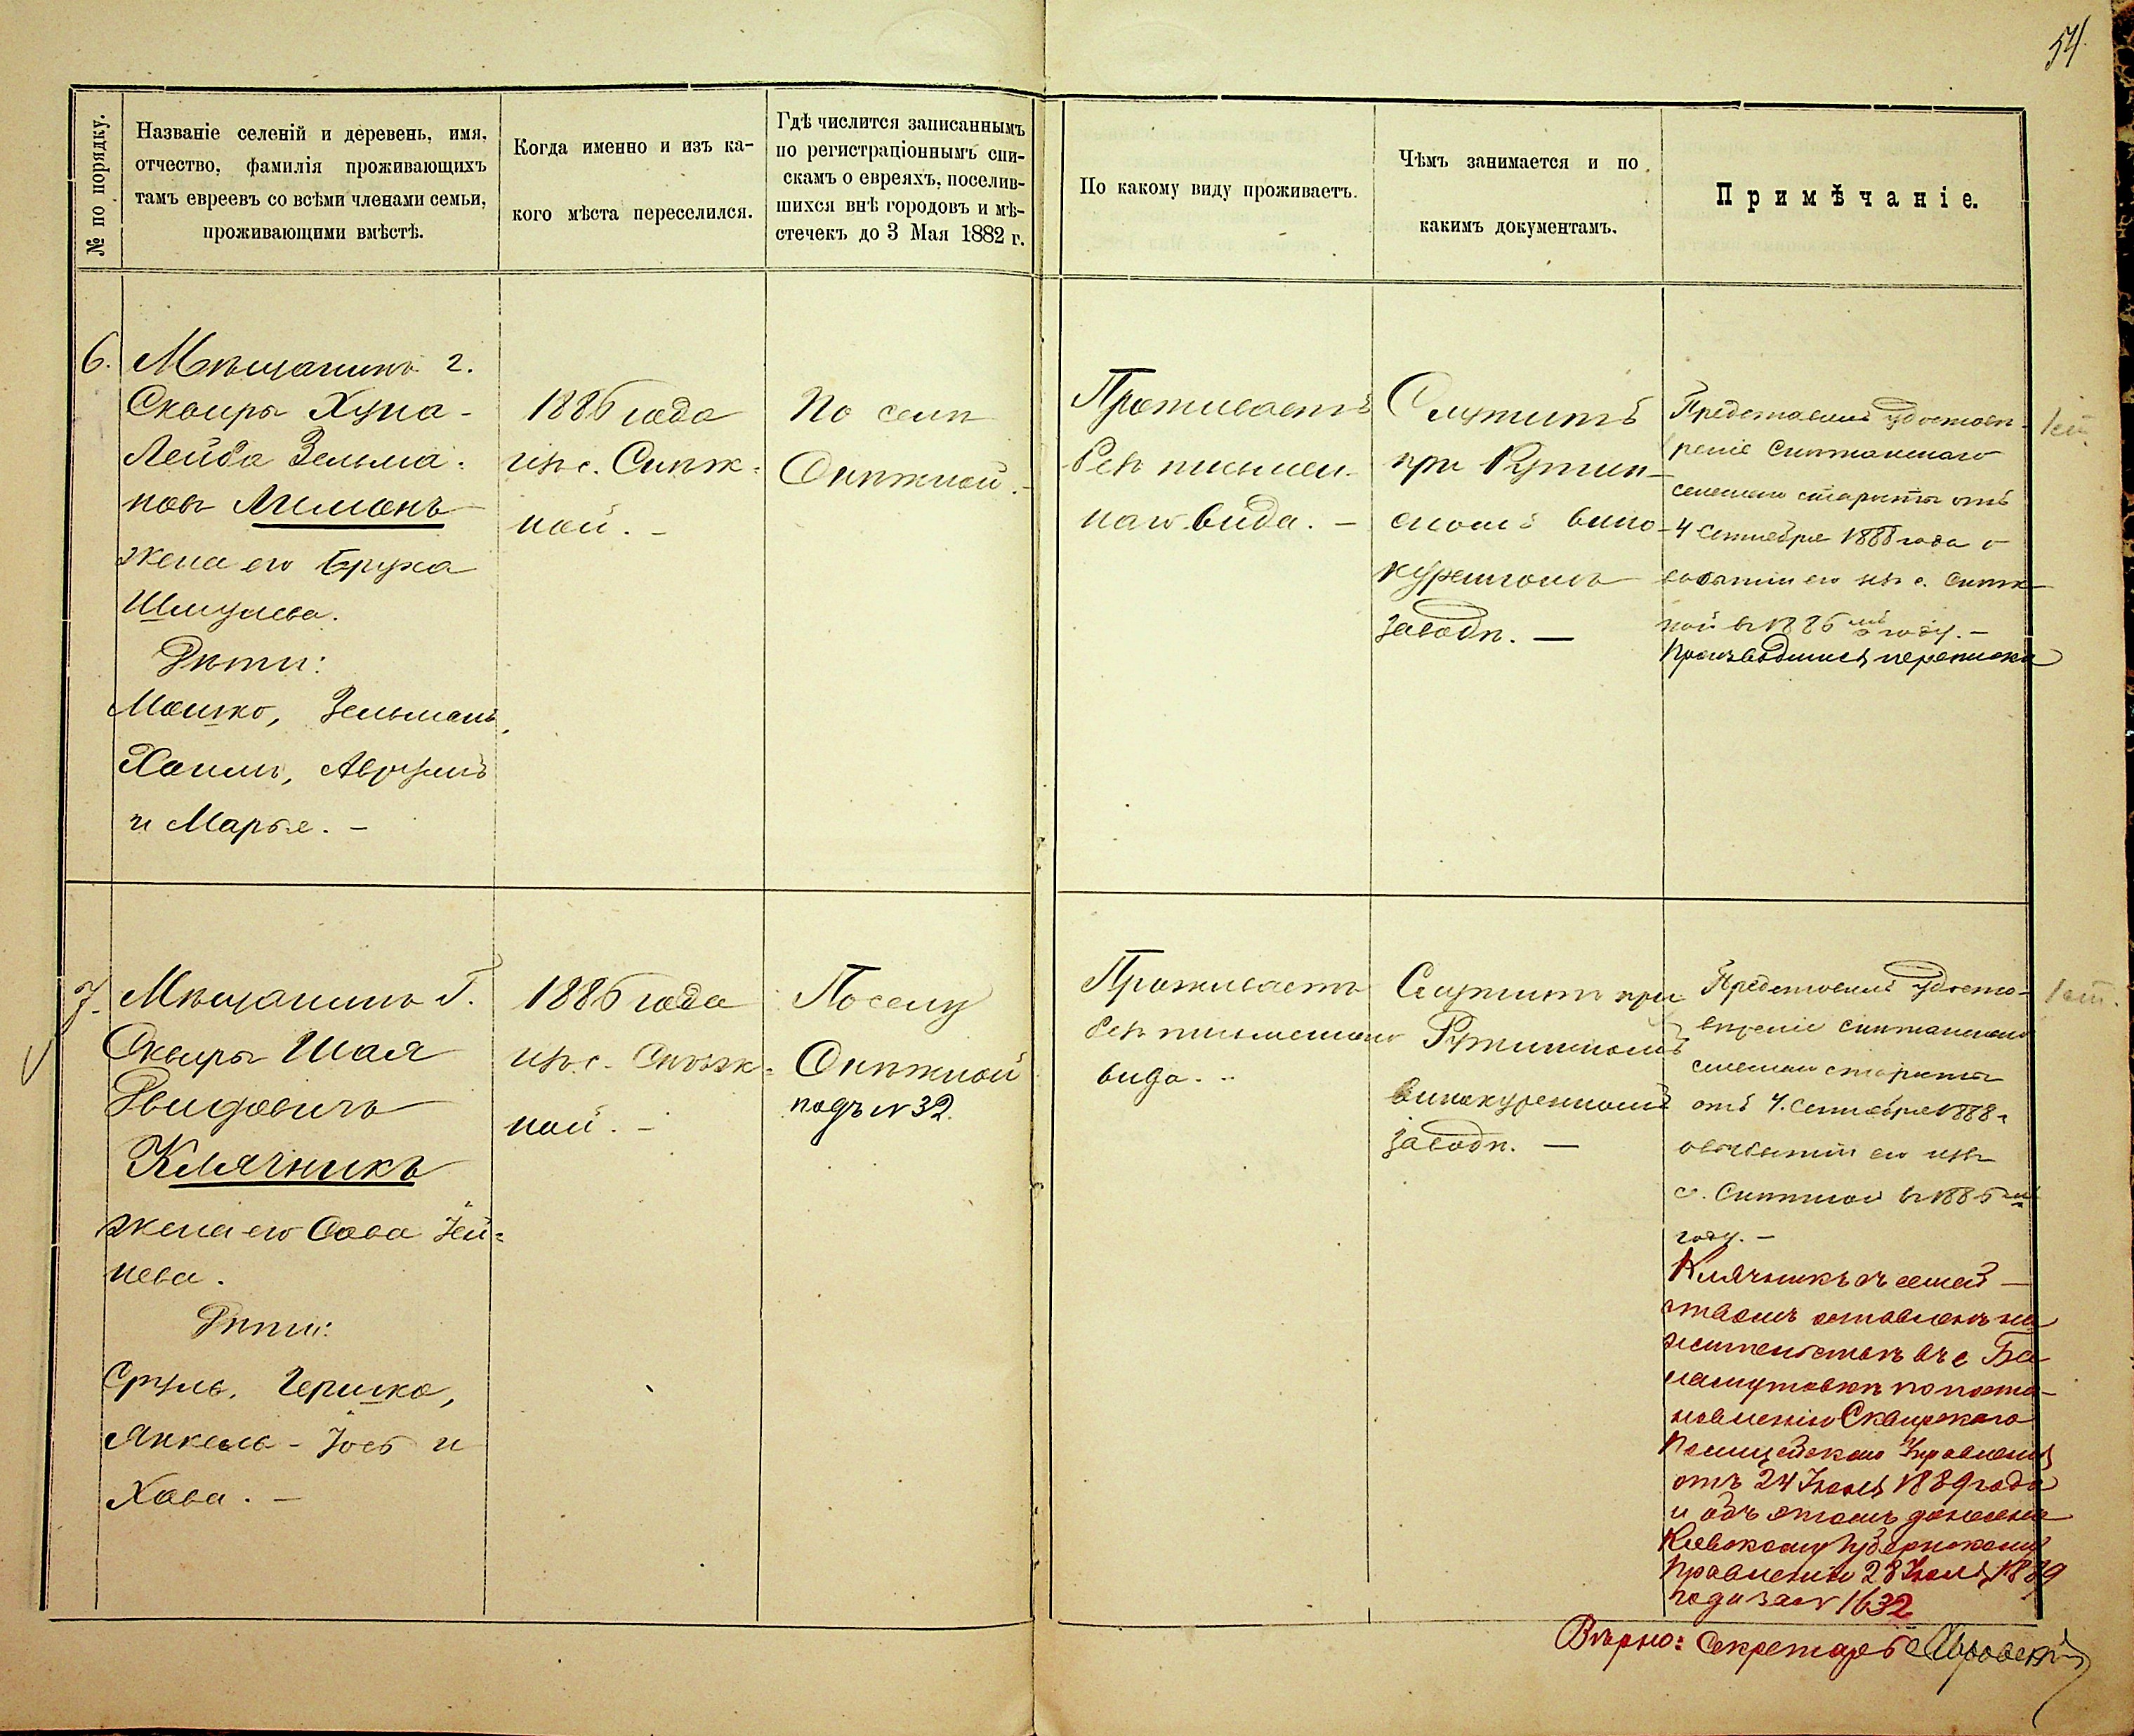 54.
№ по порядку.
Названіе селеній и деревень, имя,
отчество, фамилія проживающихъ
тамъ евреевъ со всѣми членами семьи,
проживающими вмѣстѣ.
Когда именно и изъ ка-
кого мѣста переселился.
Гдѣ числится записаннымъ
по регистраціоннымъ спи-
скамъ о евреяхъ, поселив-
шихся внѣ городовъ и мѣ-
стечекъ до 3 Мая 1882 г.
По какому виду проживаетъ.
Чѣмъ занимается и по
какимъ документамъ.
Примѣчаніе.
6.
Мѣщанинъ г.
Сквиры Хуна-
Лейба Зельма-
новъ
жена его Бруха
Шмулева.
Дѣти:
Мошко, Зельманъ,
Хаимъ, Аврумъ
и Марья. –
1886 года
изъ с. Снѣж-
ной. –
По селу
Снѣжной. –
Проживаетъ
безъ письмен-
наго вида. –
Служитъ
при Ружин-
скомъ вино-
куренномъ
заводѣ. –
Представилъ удостовѣ-
реніе Снѣжанскаго
сельскаго старосты отъ
4 Сентября 1888 года о
выбытіи его изъ с. Снѣж-
ной въ 1886 мъ году. –
Производится переписка
7.
Мѣщанинъ г.
Сквиры Шая
Двидовичъ
Клячникъ
жена его Сова Іей-
нева.
Дѣти:
Сруль, Гершко,
Янкель-Іось и
Хава. –
1886 года
изъ с. Снѣж-
ной. –
По селу
Снѣжной
подъ № 32.
Проживаетъ
безъ письменнаго
вида. –
Служитъ при
Ружинскомъ
винокуренномъ
заводѣ. –
Представилъ удосто-
вѣреніе Снѣжанскаго
сельскаго старосты
отъ 4. Сентября 1888 г.
о выбытіи его изъ
с. Снѣжной въ 1886 мъ
году. –
Клячникъ съ семей-
ствомъ оставленъ на
жительствѣ въ с. Ба-
ламутовкѣ по поста-
новленію Сквирскаго
Полицейскаго Управленія
отъ 24 Іюля 1889 года
и объ этомъ донесено
Кіевскому Губернскому
Правленію 28 Іюля 1889
года за № 1632
Вѣрно: Секретарь